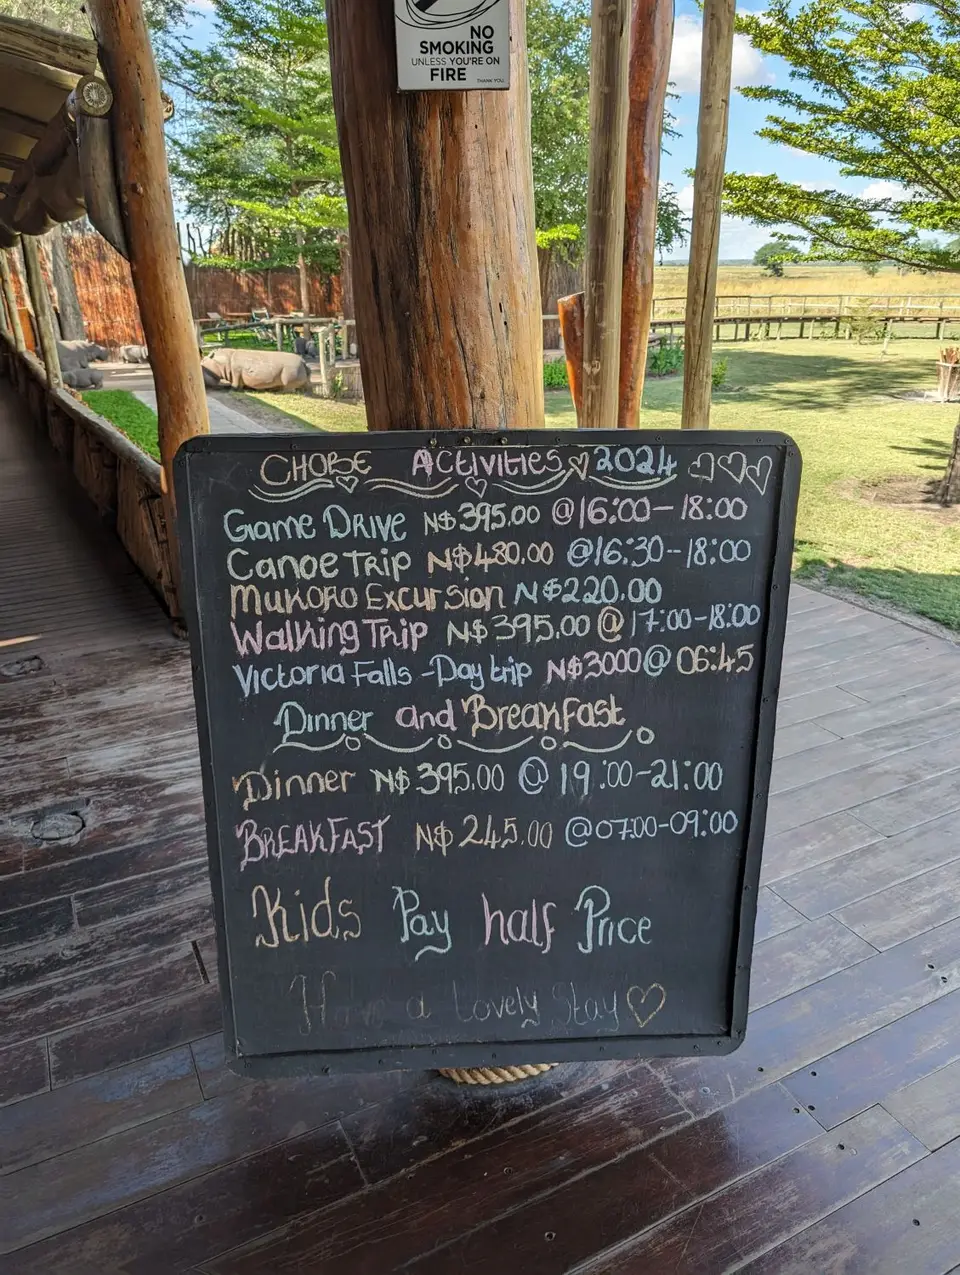 NO
SMOKING
UNLESS YOU'RE ON
FIRE
THANK YOU
CHOBE Activities 2024
Game Drive N$395.00 @16:00-18:00
Canoe Trip N$480.00 @16:30-18:00
Mukoro Excursion N$220.00
Walking Trip N$395.00 @17:00-18:00
Victoria Falls -Day trip N$3000@06:45
Dinner and Breakfast
Dinner N$395.00 @ 19:00-21:00
BREAKFAST N$245.00 @07:00-09:00
Kids Pay half Price
Have a Lovely Stay